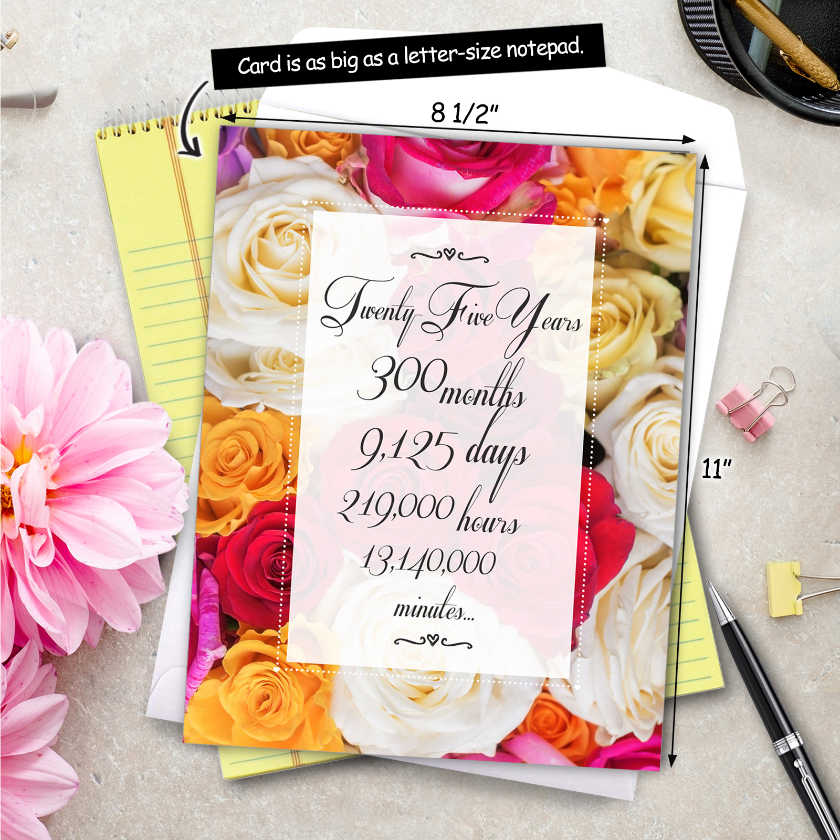 Card is as big as a letter-size notepad.
8 1/2"
Twenty-Five Years
300 months
9,125 days
219,000 hours
13,140,000
minutes...
11"